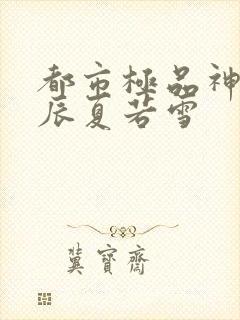 都市極品神
辰夏若雪
冀寶齋